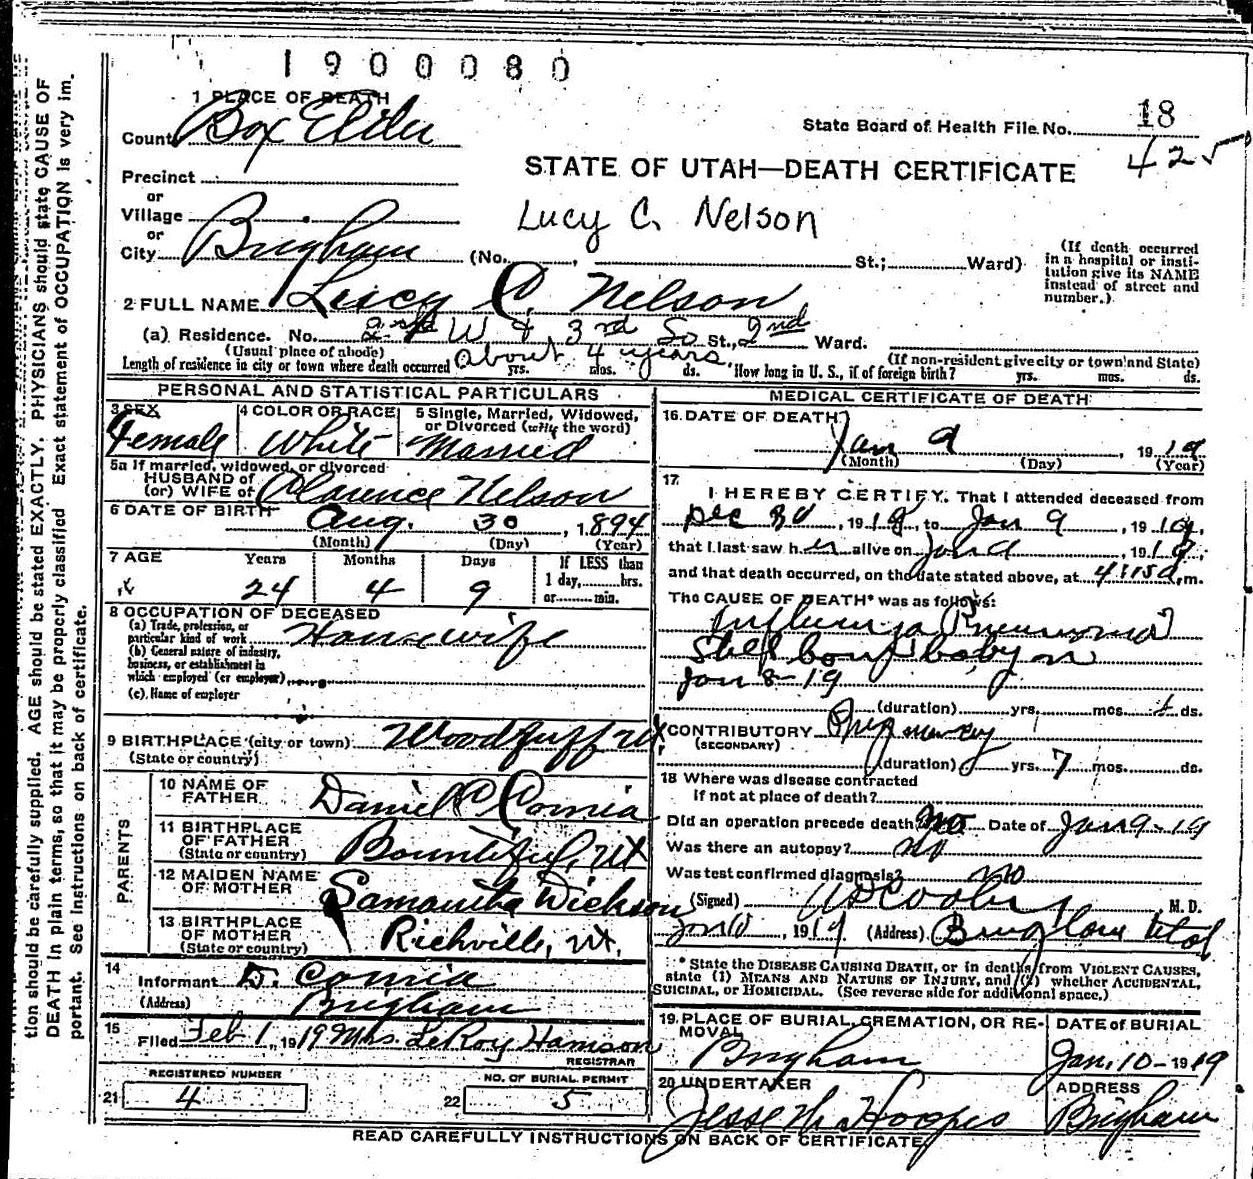 1900080
1 PLACE OF DEATH
County Box Elder
State Board of Health File No. 18
425
STATE OF UTAH—DEATH CERTIFICATE
Precinct
or
Village
or
City Brigham (No. , St.; Ward)
Lucy C. Nelson
(If death occurred
in a hospital or insti-
tution give its NAME
instead of street and
number.)
2 FULL NAME Lucy C. Nelson
(a) Residence. No. 2nd W & 3rd So St., 2nd Ward.
(Usual place of abode) (If non-resident give city or town and State)
Length of residence in city or town where death occurred about 4 years yrs. mos. ds. How long in U. S., if of foreign birth? yrs. mos. ds.
PERSONAL AND STATISTICAL PARTICULARS
3 SEX 4 COLOR OR RACE 5 Single, Married, Widowed,
or Divorced (write the word)
Female White Married
5a If married, widowed, or divorced
HUSBAND of
(or) WIFE of Clarence Nelson
6 DATE OF BIRTH Aug. 30, 1894
(Month) (Day) (Year)
7 AGE Years Months Days If LESS than
1 day, hrs.
24 4 9 or min.
8 OCCUPATION OF DECEASED
(a) Trade, profession, or
particular kind of work Housewife
(b) General nature of industry,
business, or establishment in
which employed (or employer)
(c) Name of employer
9 BIRTHPLACE (city or town) Woodruff Ut
(State or country)
PARENTS
10 NAME OF
FATHER Daniel C Cornia
11 BIRTHPLACE
OF FATHER
(State or country) Bountiful, Ut
12 MAIDEN NAME
OF MOTHER Samantha Dickson
13 BIRTHPLACE
OF MOTHER
(State or country) Richville, Ut.
14
Informant D. Cornia
(Address) Brigham
15
Filed Feb 1, 1919 Mrs. LeRoy Hamson
REGISTRAR
REGISTERED NUMBER NO. OF BURIAL PERMIT
21 4 22 5
MEDICAL CERTIFICATE OF DEATH
16 DATE OF DEATH
Jan 9, 1919
(Month) (Day) (Year)
17
I HEREBY CERTIFY, That I attended deceased from
Dec 30, 1918, to Jan 9, 1919,
that I last saw her alive on Jan 9 1919,
and that death occurred, on the date stated above, at 4:15 a, m.
The CAUSE OF DEATH* was as follows:
Influenza Pneumonia
Still born baby on
Jan 8-19
(duration) yrs. mos. ds.
CONTRIBUTORY Pregnancy
(SECONDARY)
(duration) yrs. 7 mos. ds.
18 Where was disease contracted
if not at place of death?
Did an operation precede death? No Date of Jan 9-19
Was there an autopsy? no
Was test confirmed diagnosis? no
(Signed) M. D.
, 1919 (Address) Brigham Utah
* State the DISEASE CAUSING DEATH, or in deaths from VIOLENT CAUSES,
state (1) MEANS AND NATURE OF INJURY, and (2) whether ACCIDENTAL,
SUICIDAL, or HOMICIDAL. (See reverse side for additional space.)
19 PLACE OF BURIAL, CREMATION, OR RE-
MOVAL DATE of BURIAL
Brigham Jan. 10-1919
20 UNDERTAKER ADDRESS
Jesse M. Hoopes Brigham
READ CAREFULLY INSTRUCTIONS ON BACK OF CERTIFICATE.
tion should be carefully supplied. AGE should be stated EXACTLY. PHYSICIANS should state CAUSE OF
DEATH in plain terms, so that it may be properly classified. Exact statement of OCCUPATION is very im-
portant. See instructions on back of certificate.